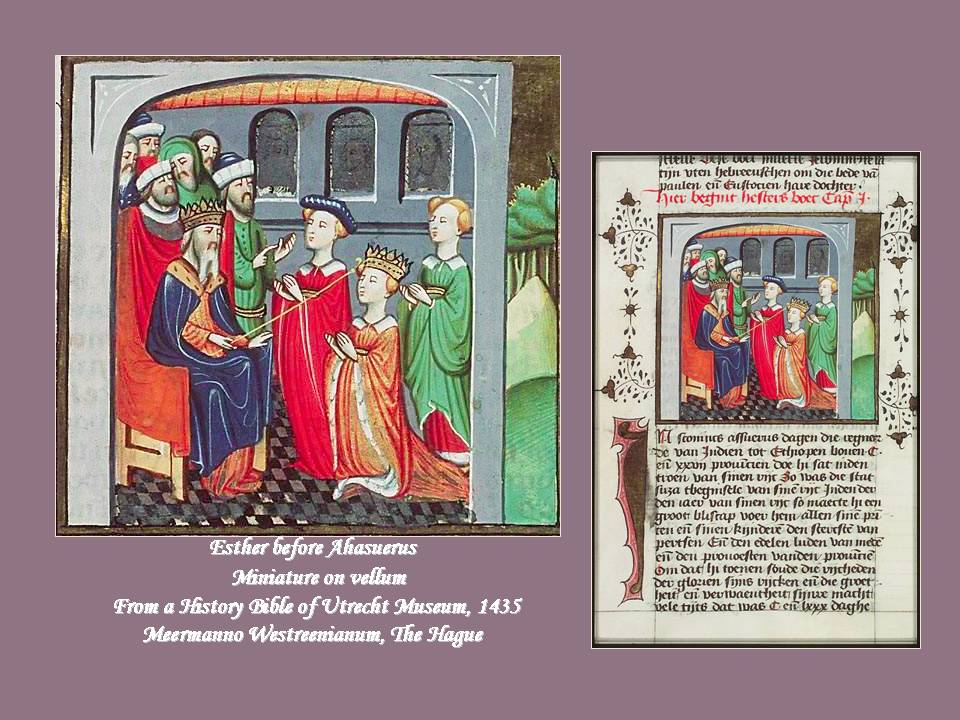 Esther before Ahasuerus
Miniature on vellum
From a History Bible of Utrecht Museum, 1435
Meermanno Westreenianum, The Hague
tijn vten hebreeuschen om die bede vā
paulen eñ Eustocien haer dochter.
Hier begint hesters boec Cap I.
coninc assuerus dagen die regneer
de van Indien tot Ethiopen boven C.
eñ xxvij provincien doe hi sat inden
troen van sinen rijc Zo was die stat
suza tbeginsele van sinē rijc Inden der
den iaer van sinen rijc so maecte hi een
groot bliscap voer hem allen sinē prī
cen eñ sinen kinderē den stercstē van
persen Eñ den edelen luden van mede
eñ den provoesten vanden provinciē
om dat hi toenen soude die rijcheden
der glorien sijns rijcken eñ die groet
heit eñ verwaentheit sijnre macht
vele tijts dat was C eñ lxxx daghe